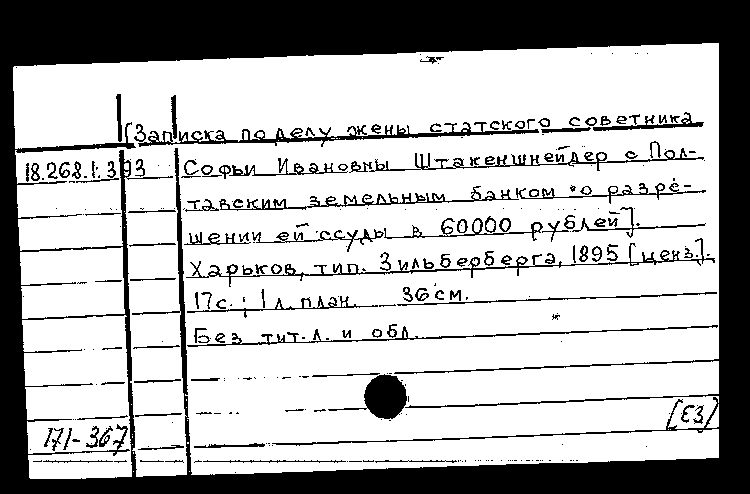 [Записка по делу жены статского советника
18.268.1.393 Софьи Ивановны Штакеншнейдер с Пол-
тавским земельным банком о разре-
шении ей ссуды в 60000 рублей].
Харьков, тип. Зильберберга, 1895 [ценз.].
17с.; 1 л. план. 36 см.
Без тит. л. и обл.
[ЕЗ]
171-367